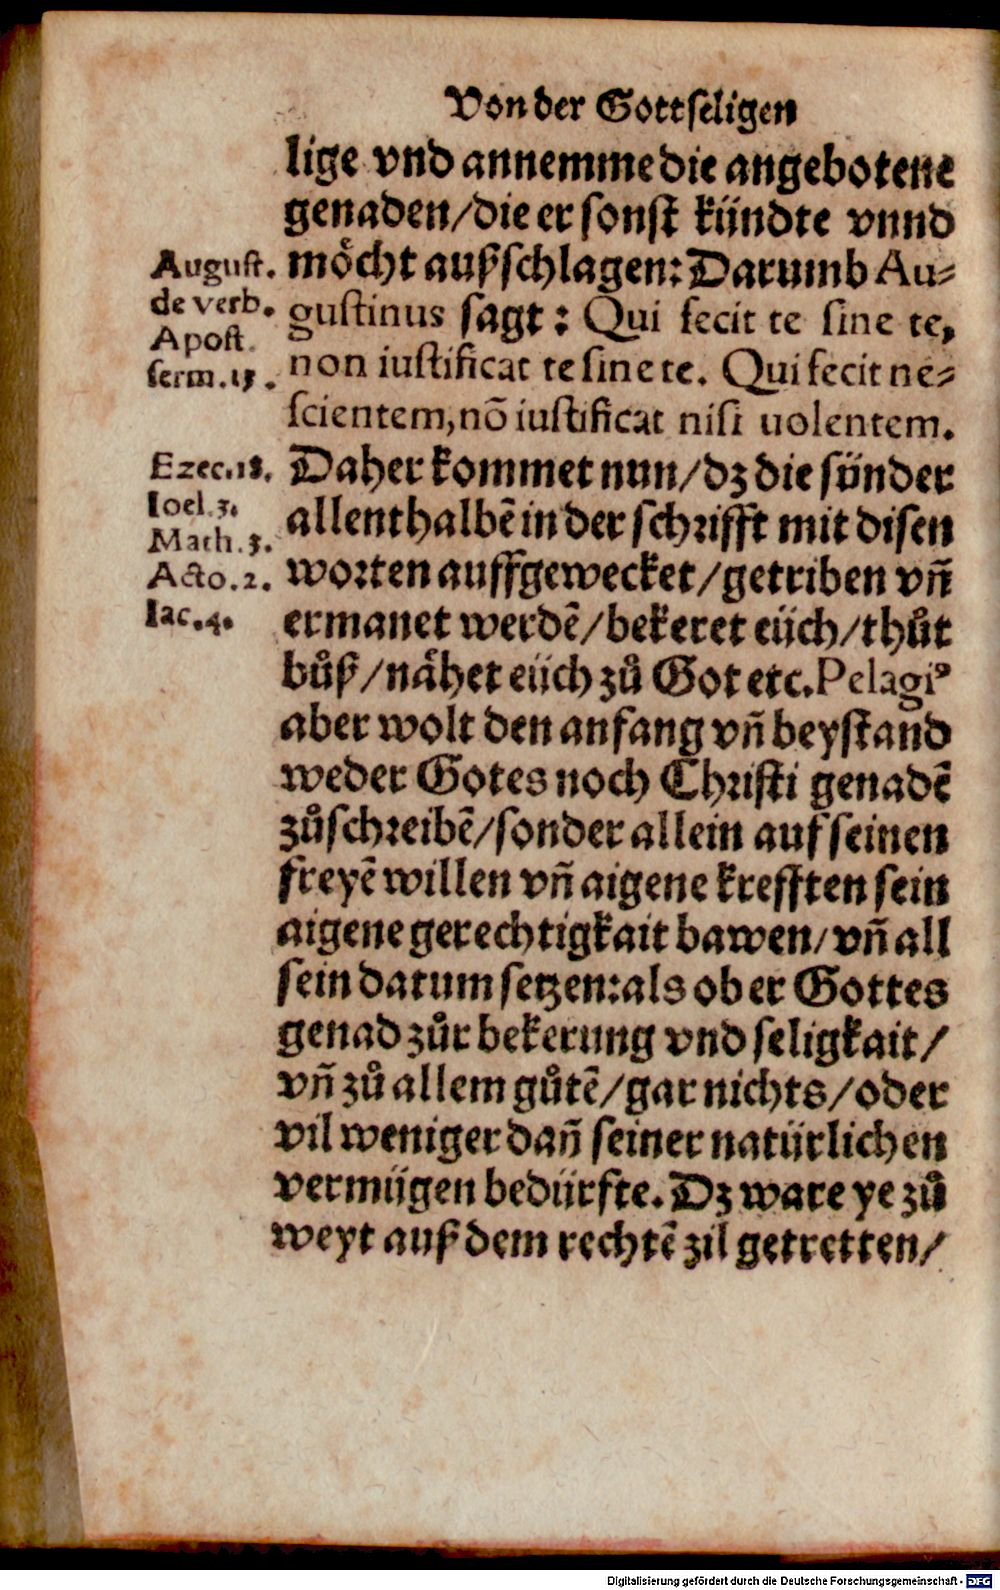 Von der Gottseligen
lige vnd annemme die angebotene
genaden/die er sonst kündte vnnd
möcht außschlagen: Darumb Au⸗
gustinus sagt: Qui fecit te sine te,
non iustificat te sine te. Qui fecit ne⸗
scientem, nō iustificat nisi uolentem.
Daher kommet nun/dz die sünder
allenthalbē in der schrifft mit disen
worten auffgewecket/getriben vn̄
ermanet werdē/bekeret eüch/thůt
bůß/nähet eüch zů Got etc. Pelagiꝰ
aber wolt den anfang vn̄ beystand
weder Gotes noch Christi genadē
zůschreibē/sonder allein auf seinen
freyē willen vn̄ aigene krefften sein
aigene gerechtigkait bawen/vn̄ all
sein datum setzen: als ob er Gottes
genad zůr bekerung vnd seligkait/
vn̄ zů allem gůtē/gar nichts/oder
vil weniger dan̄ seiner natürlichen
vermügen bedürfte. Dz ware ye zů
weyt auß dem rechtē zil getretten/
August.
de verb.
Apost.
serm.15.
Ezec.18.
Ioel.3.
Math.3.
Acto.2.
Iac.4.
Digitalisierung gefördert durch die Deutsche Forschungsgemeinschaft - DFG